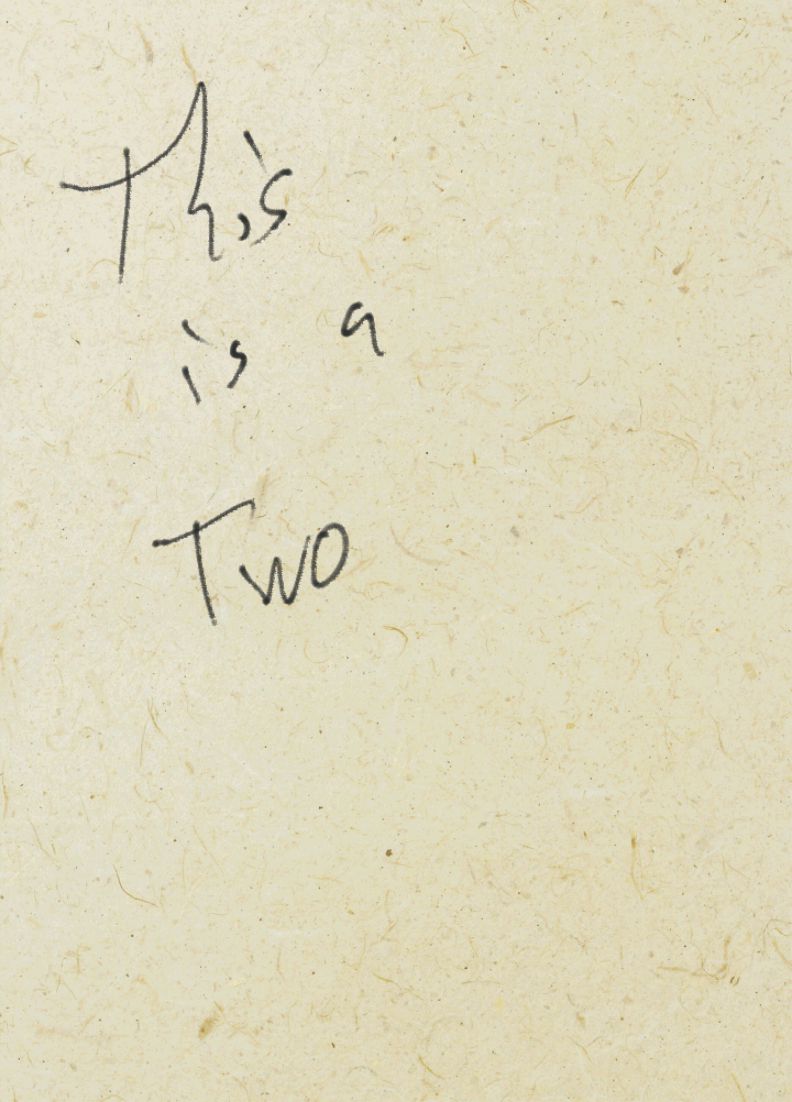 This
is a
Two